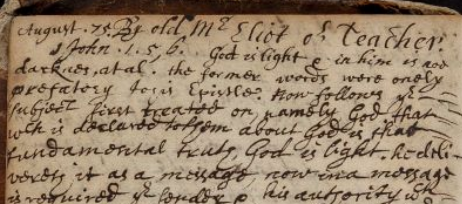 August. 75. By old, Mr Eliot or Teacher.
1 John. 1. 5, 6. God is light & in him is noe
darknes, at al. the former words were onely
prefatory to is Epistle. Now follows ye
subject first treated on, namely God that
wch is declared to them about God is that
fundamental truth, God is light. he deli
verets it as a message, now in a message
is required ye sender & his authority wh